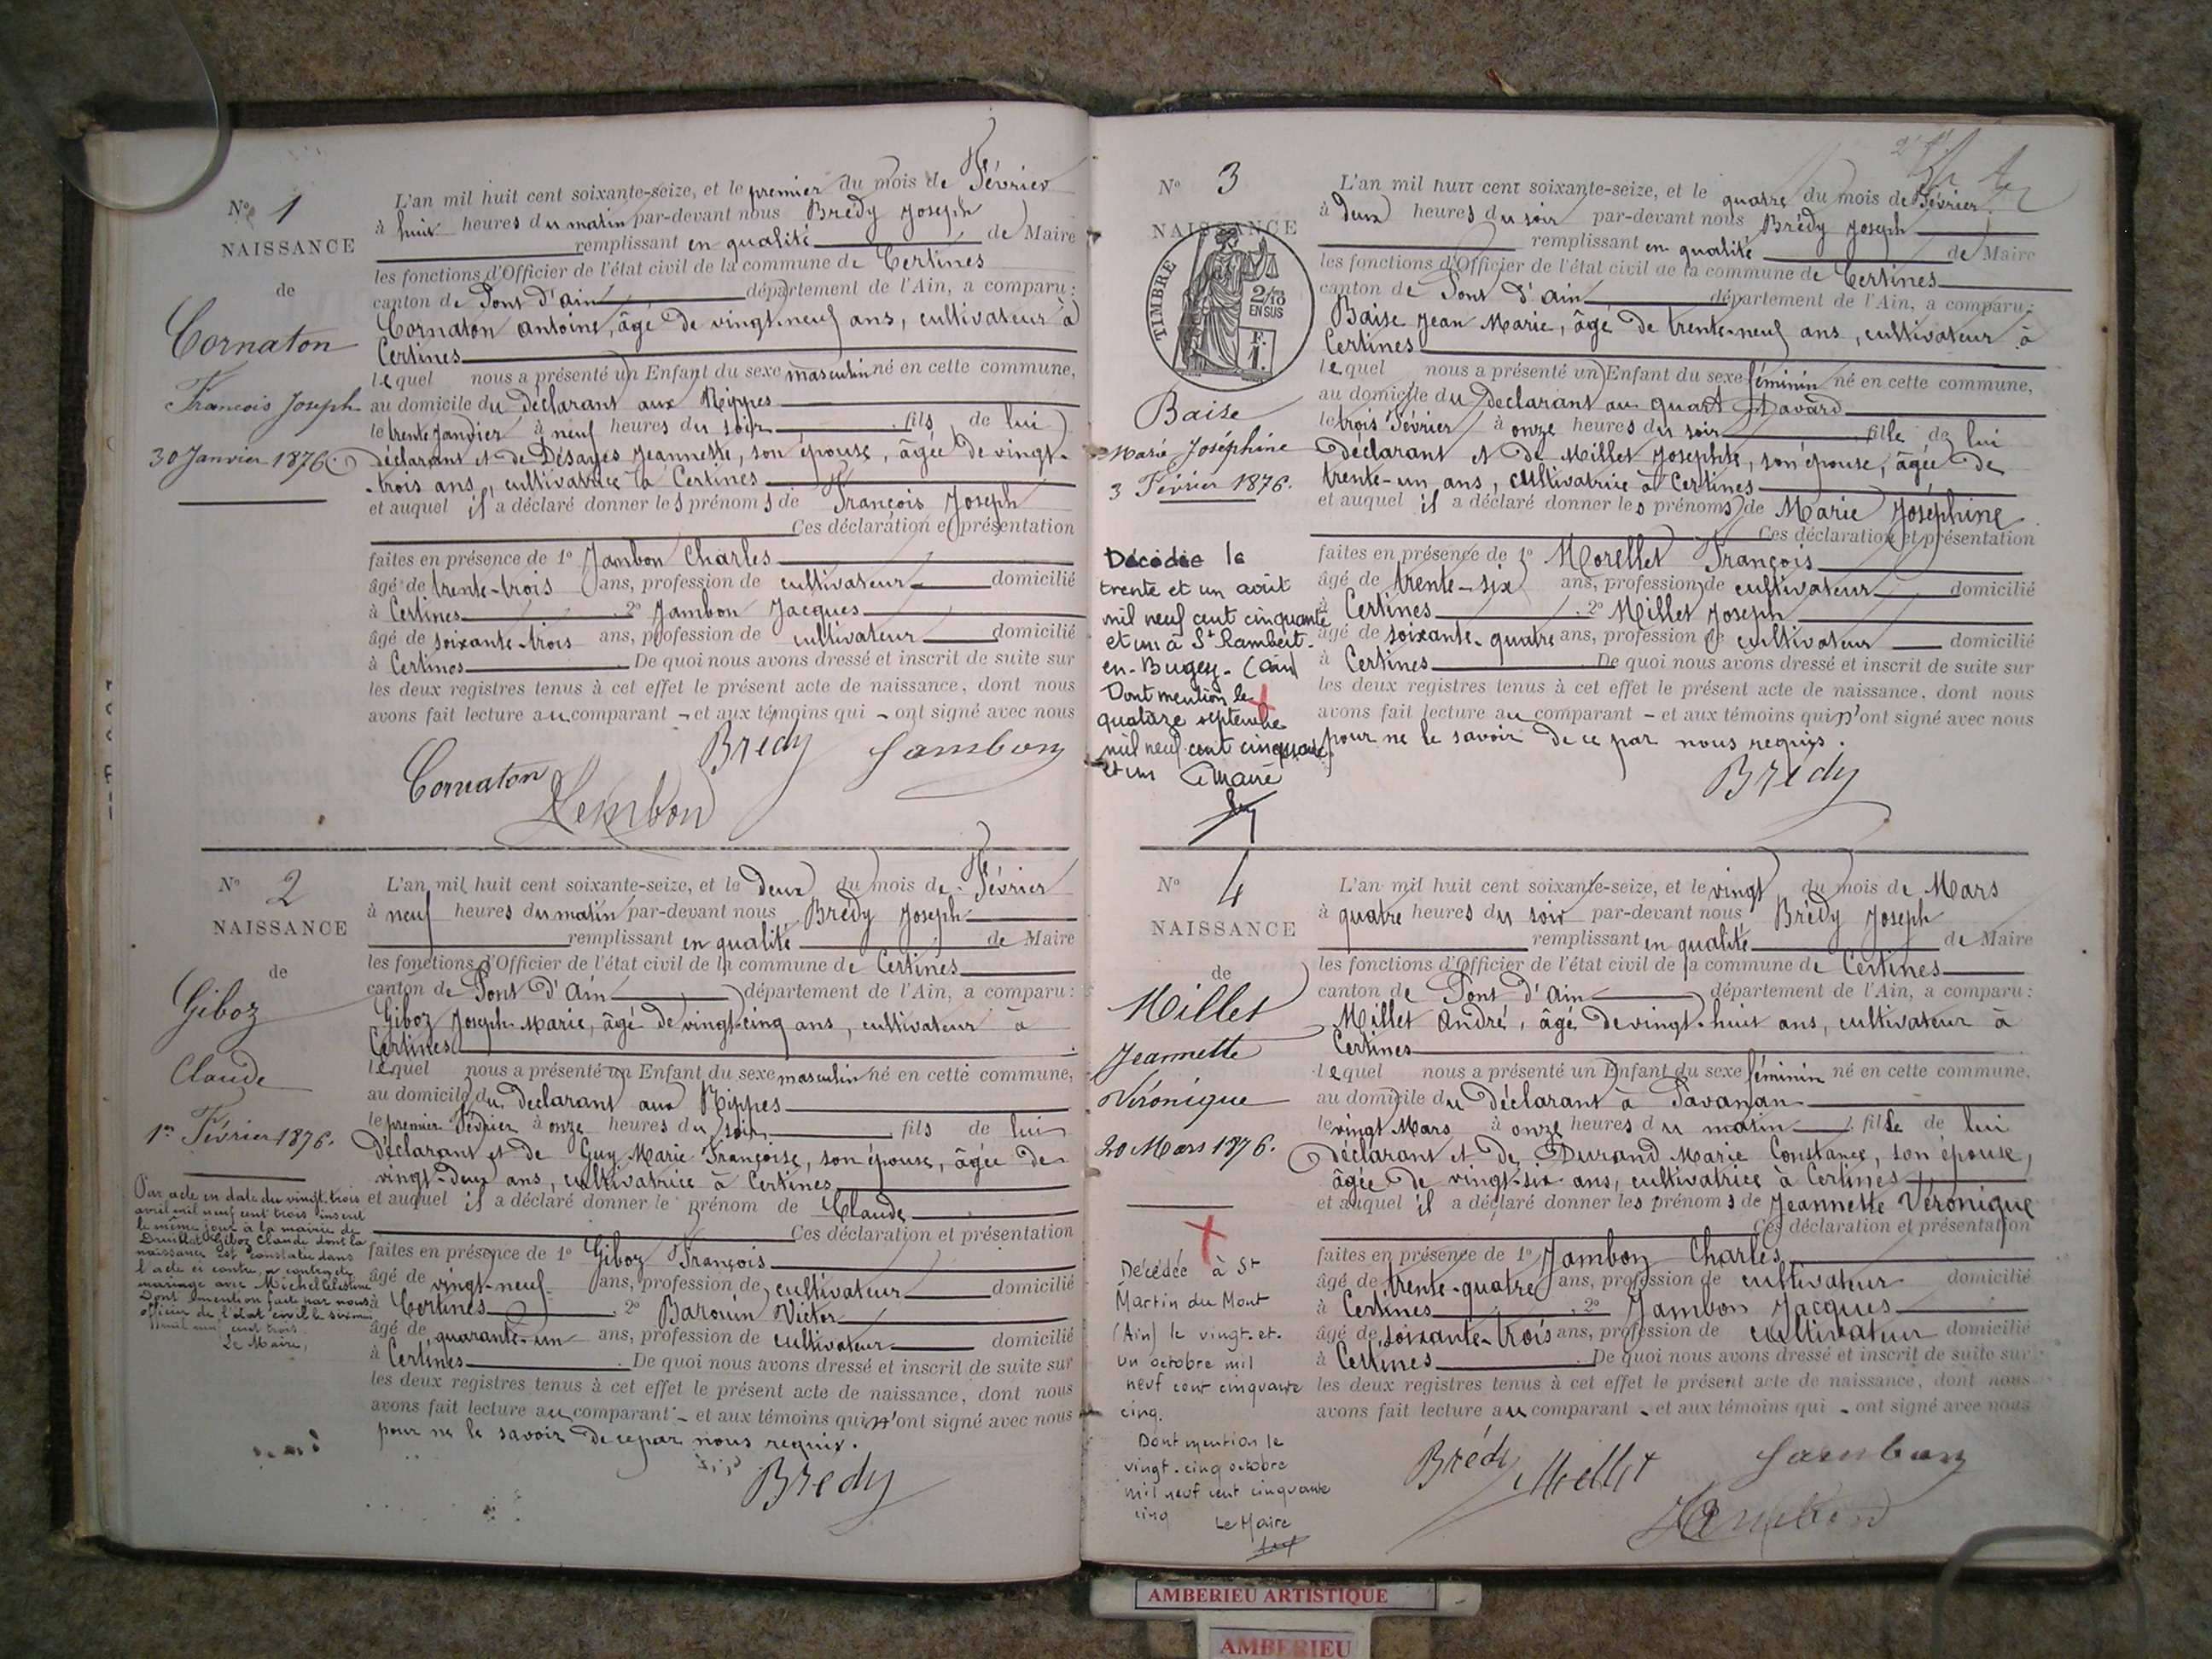 N° 1
NAISSANCE
de
Cornaton
François Joseph
30 Janvier 1876.
L'an mil huit cent soixante-seize, et le premier du mois de Février
à huit heures du matin par-devant nous Brédy Joseph
remplissant en qualité de Maire
les fonctions d'Officier de l'état civil de la commune de Certines
canton de Pont d'ain département de l'Ain, a comparu :
Cornaton antoine, âgé de vingt-neuf ans, cultivateur à
Certines
lequel nous a présenté un Enfant du sexe masculin né en cette commune,
au domicile du déclarant aux Rippes
le trente Janvier à neuf heures du soir fils de lui
déclarant et de Désayes Jeannette, son épouse, âgée de vingt-
-trois ans, cultivatrice à Certines
et auquel il a déclaré donner les prénoms de François Joseph
Ces déclaration et présentation
faites en présence de 1° Jambon Charles
âgé de trente-trois ans, profession de cultivateur domicilié
à Certines . 2° Jambon Jacques
âgé de soixante-trois ans, profession de cultivateur domicilié
à Certines De quoi nous avons dressé et inscrit de suite sur
les deux registres tenus à cet effet le présent acte de naissance, dont nous
avons fait lecture au comparant - et aux témoins qui - ont signé avec nous
Brédy Jambon
Cornaton Jembon
N° 2
NAISSANCE
de
Giboz
Claude
1er Février 1876.
Par acte en date du vingt-trois
avril mil neuf cent trois inscrit
le même jour à la mairie de
Druillat Giboz Claude dont la
naissance est constatée dans
l'acte ci contre, a contracté
mariage avec Michel Célestine
Dont mention faite par nous
officier de l'état civil le
mil neuf cent trois
Le Maire,
L'an mil huit cent soixante-seize, et le deux du mois de Février
à neuf heures du matin par-devant nous Brédy Joseph
remplissant en qualité de Maire
les fonctions d'Officier de l'état civil de la commune de Certines
canton de Pont d'ain département de l'Ain, a comparu :
Giboz Joseph Marie, âgé de vingt-cinq ans, cultivateur à
Certines
lequel nous a présenté un Enfant du sexe masculin né en cette commune,
au domicile du déclarant aux Rippes
le premier Février à onze heures du soir fils de lui
déclarant et de Guy Marie Françoise, son épouse, âgée de
vingt-deux ans, cultivatrice à Certines
et auquel il a déclaré donner le prénom de Claude
Ces déclaration et présentation
faites en présence de 1° Giboz François
âgé de vingt-neuf ans, profession de cultivateur domicilié
à Certines . 2° Barouin Victor
âgé de quarante-un ans, profession de cultivateur domicilié
à Certines . De quoi nous avons dressé et inscrit de suite sur
les deux registres tenus à cet effet le présent acte de naissance, dont nous
avons fait lecture au comparant - et aux témoins qui n'ont signé avec nous
pour ne le savoir de ce par nous requis.
Brédy
N° 3
NAISSANCE
TIMBRE
2/10
EN SUS
F.
1.
Baise
Marie Joséphine
3 Février 1876.
Décédée le
trente et un août
mil neuf cent cinquante
et un à St Rambert-
en-Bugey- (Ain)
Dont mention le
quatorze septembre
mil neuf cent cinquante
et un Le Maire
L'an mil huit cent soixante-seize, et le quatre du mois de Février
à deux heures du soir par-devant nous Brédy Joseph
remplissant en qualité de Maire
les fonctions d'Officier de l'état civil de la commune de Certines
canton de Pont d'ain département de l'Ain, a comparu :
Baise Jean Marie, âgé de trente-neuf ans, cultivateur à
Certines
lequel nous a présenté un Enfant du sexe féminin né en cette commune,
au domicile du déclarant au quart
le trois Février à onze heures du soir fille de lui
déclarant et de Millet Josephte, son épouse, âgée de
trente-un ans, cultivatrice à Certines
et auquel il a déclaré donner les prénoms de Marie Joséphine
Ces déclaration et présentation
faites en présence de 1° Morellet François
âgé de trente-six ans, profession de cultivateur domicilié
à Certines . 2° Millet Joseph
âgé de soixante-quatre ans, profession de cultivateur domicilié
à Certines De quoi nous avons dressé et inscrit de suite sur
les deux registres tenus à cet effet le présent acte de naissance, dont nous
avons fait lecture au comparant - et aux témoins qui n'ont signé avec nous
pour ne le savoir de ce par nous requis.
Brédy
N° 4
NAISSANCE
de
Millet
Jeannette
Véronique
20 Mars 1876.
Décédée à St
Martin du Mont
(Ain) le vingt-et-
un octobre mil
neuf cent cinquante
cinq.
Dont mention le
vingt-cinq octobre
mil neuf cent cinquante
cinq Le Maire
L'an mil huit cent soixante-seize, et le vingt du mois de Mars
à quatre heures du soir par-devant nous Brédy Joseph
remplissant en qualité de Maire
les fonctions d'Officier de l'état civil de la commune de Certines
canton de Pont d'ain département de l'Ain, a comparu :
Millet André, âgé de vingt-huit ans, cultivateur à
Certines
lequel nous a présenté un Enfant du sexe féminin né en cette commune,
au domicile du déclarant à Pavanan
le vingt Mars à onze heures du matin fille de lui
déclarant et de Durand Marie Constance, son épouse,
âgée de vingt-six ans, cultivatrice à Certines
et auquel il a déclaré donner les prénoms de Jeannette Véronique
Ces déclaration et présentation
faites en présence de 1° Jambon Charles
âgé de trente-quatre ans, profession de cultivateur domicilié
à Certines . 2° Jambon Jacques
âgé de soixante-trois ans, profession de cultivateur domicilié
à Certines . De quoi nous avons dressé et inscrit de suite sur
les deux registres tenus à cet effet le présent acte de naissance, dont nous
avons fait lecture au comparant - et aux témoins qui - ont signé avec nous
Brédy Mellet Jambon
Jambon
AMBERIEU ARTISTIQUE
AMBERIEU